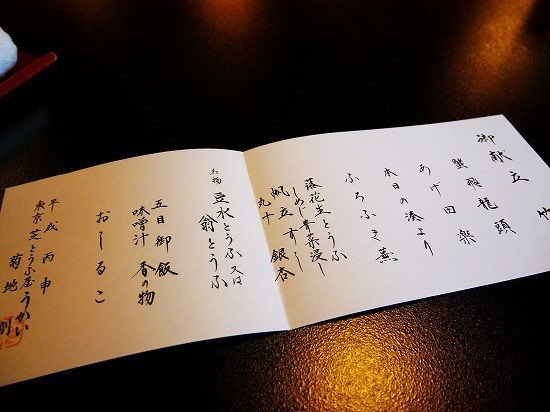 御献立 竹
蟹飛龍頭
あげ田楽
本日の湊より
ふろふき蕪
落花生とうふ
しめじ青菜浸し
帆立すし
九十 銀杏
名物 豆水とうふ 又は
翁とうふ
五目御飯
味噌汁 香の物
おしるこ
平成丙申
東京 芝とうふ屋うかい
菊地 剛